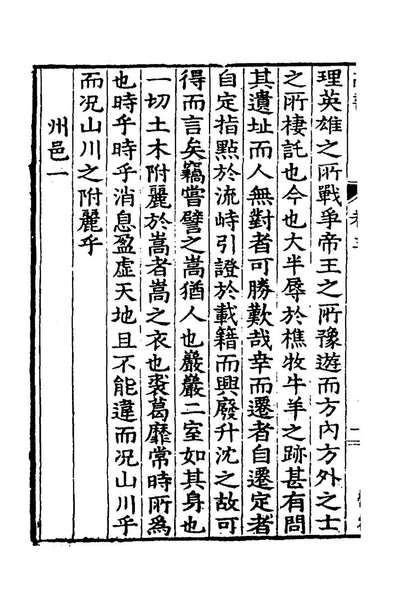 理英雄之所戰爭帝王之所豫遊而方內方外之士
之所棲託也今也大半辱於樵牧牛羊之跡甚有問
其遺址而人無對者可勝歎哉幸而遷者自遷定者
自定指點於流峙引證於載籍而興廢升沈之故可
得而言矣竊嘗譬之嵩猶人也巖巖二室如其身也
一切土木附麗於嵩者嵩之衣也裘葛靡常時所為
也時乎時乎消息盈虛天地且不能違而況山川乎
而況山川之附麗乎
州邑一